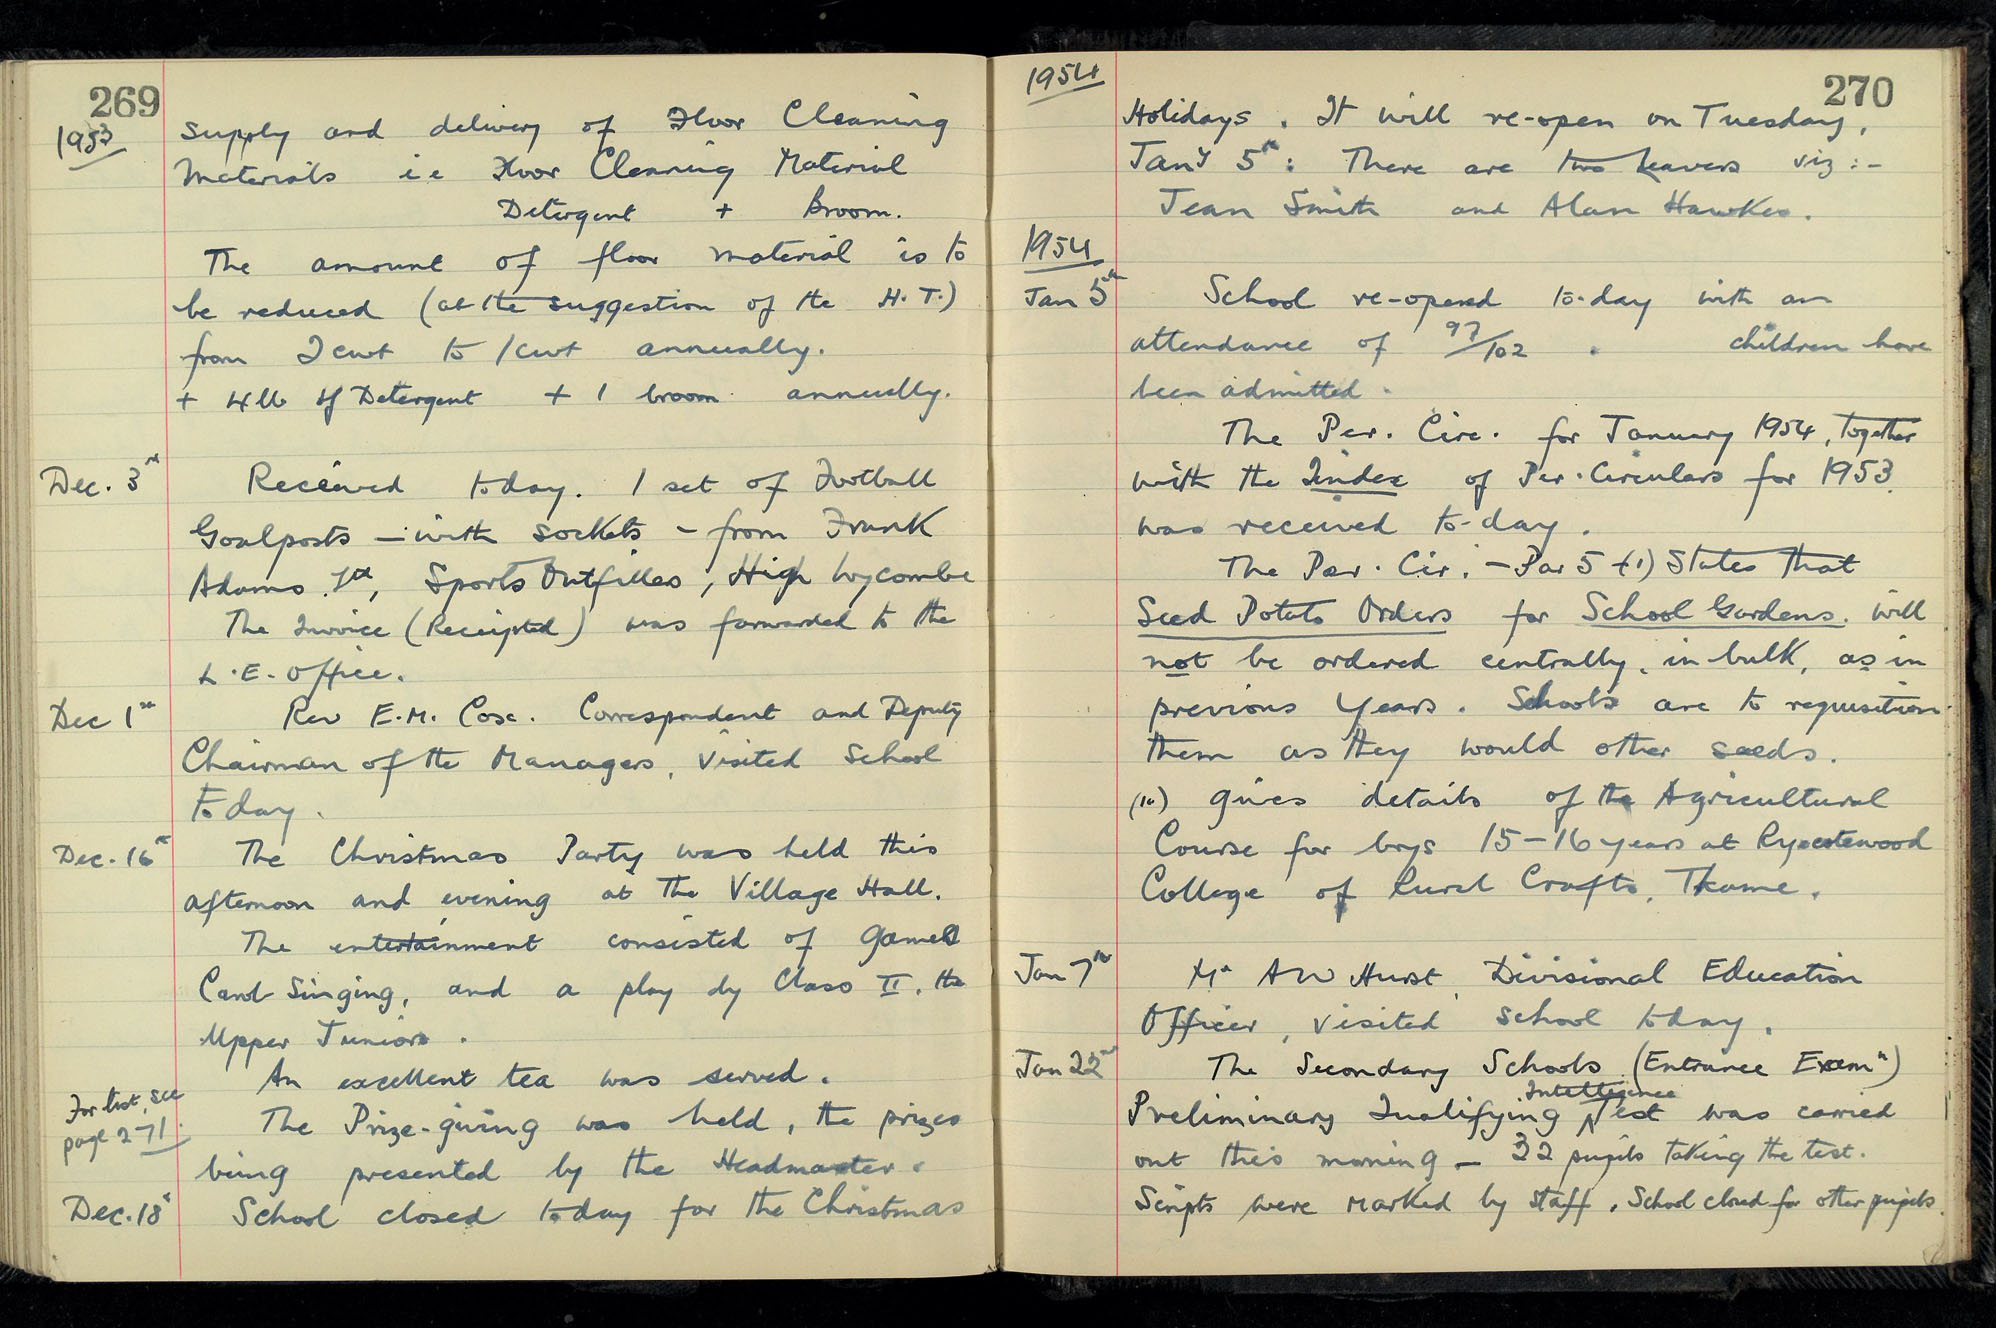 269
1953
supply and delivery of Floor Cleaning
Materials i e Floor Cleaning Material
Detergent + Broom.
The amount of floor material is to
be reduced (at the suggestion of the H.T.)
from 2 cwt to 1 cwt annually.
+ 4 lb of Detergent + 1 broom annually.
Dec. 3rd
Received today. 1 set of Football
Goalposts - with sockets - from Frank
Adams Ltd, Sports Outfitters, High Wycombe
The Invoice (Receipted) was forwarded to the
L.E. Office.
Dec 1st
Rev E.M. Cox. Correspondent and Deputy
Chairman of the Managers, visited School
today.
Dec. 16th
The Christmas Party was held this
afternoon and evening at the Village Hall.
The entertainment consisted of games
Carol Singing, and a play by Class II, the
Upper Juniors.
An excellent tea was served.
For list, see
page 271
The Prize-giving was held, the prizes
being presented by the Headmaster.
Dec. 18th
School closed today for the Christmas
1954
270
Holidays. It will re-open on Tuesday,
Jany 5th: There are two leavers viz:-
Jean Smith and Alan Hawkes.
1954
Jan 5th
School re-opened to-day with an
attendance of 97/102 . children have
been admitted.
The Per. Circ. for January 1954, together
with the Index of Per. Circulars for 1953
was received to-day.
The Per. Cir. - Par 5 (1) States that
Seed Potato Orders for School Gardens will
not be ordered centrally, in bulk, as in
previous years. Schools are to requisition
them as they would other seeds.
gives details of the Agricultural
Course for boys 15-16 years at Rycotewood
College of Rural Crafts, Thame.
Jan 7th
Mr A W Hurst, Divisional Education
Officer, visited school today.
Jan 22nd
The Secondary Schools (Entrance Examn)
Intelligence
Preliminary Qualifying Test was carried
out this morning - 32 pupils taking the test.
Scripts were marked by staff. School closed for other pupils.